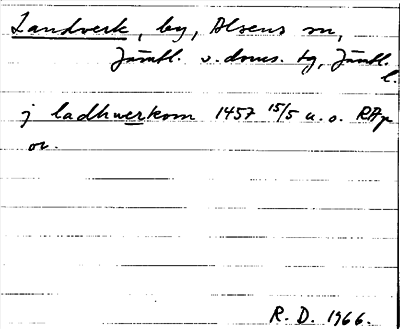 Landverk, by, Alsens sn,
Jämtl. v. doms. tg, Jämtl. l.
j ladhwerkom 1457 15/5 u. o. RAp
or.
R. D. 1966.